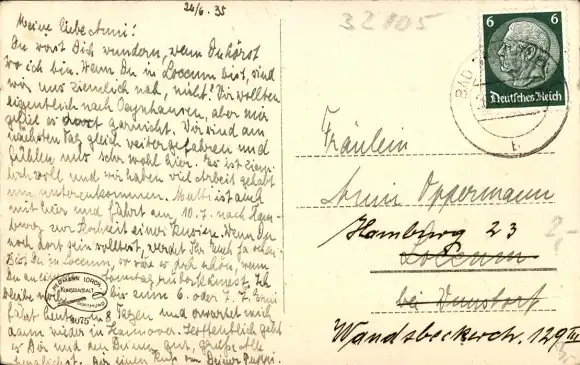 26/6. 35
Meine liebe Anni!
Du wirst Dich wundern, wenn Du hörst
wo ich bin. Wenn Du in Loccum bist, sind
wir uns ziemlich nah, nicht? Wir wollten
eigentlich nach Oeynhausen, aber mir
gefiel es dort garnicht. Wir sind am
nächsten Tag gleich weitergefahren und
fühlen uns sehr wohl hier. Es ist ziem-
lich voll und wir haben viel Arbeit gehabt
um unterzukommen. Mutti ist auch
mit hier und fährt am 10.7. nach Ham-
burg zur Hochzeit einer Kusine. Wenn Du
noch dort sein solltest, werdet Ihr Euch ja sehen.
Bist Du in Loccum, so wäre es doch schön, wenn
Du an einem Sonntag
bis zum 6. oder 7. 7.
fährt heute in 8 Tagen und
dann wieder in Hannover. Hoffentlich geht
es Dir und den Deinen gut, grüße alle
herzlichst. Dir einen Kuß von Deiner Puppi.
32105
6 6
Deutsches Reich
BAD
Fräulein
Anni Oppermann
Hamburg 23
Loccum
bei Wunstorf
Wandsbeckerch. 129 III
2,-
KUNSTANSTALT